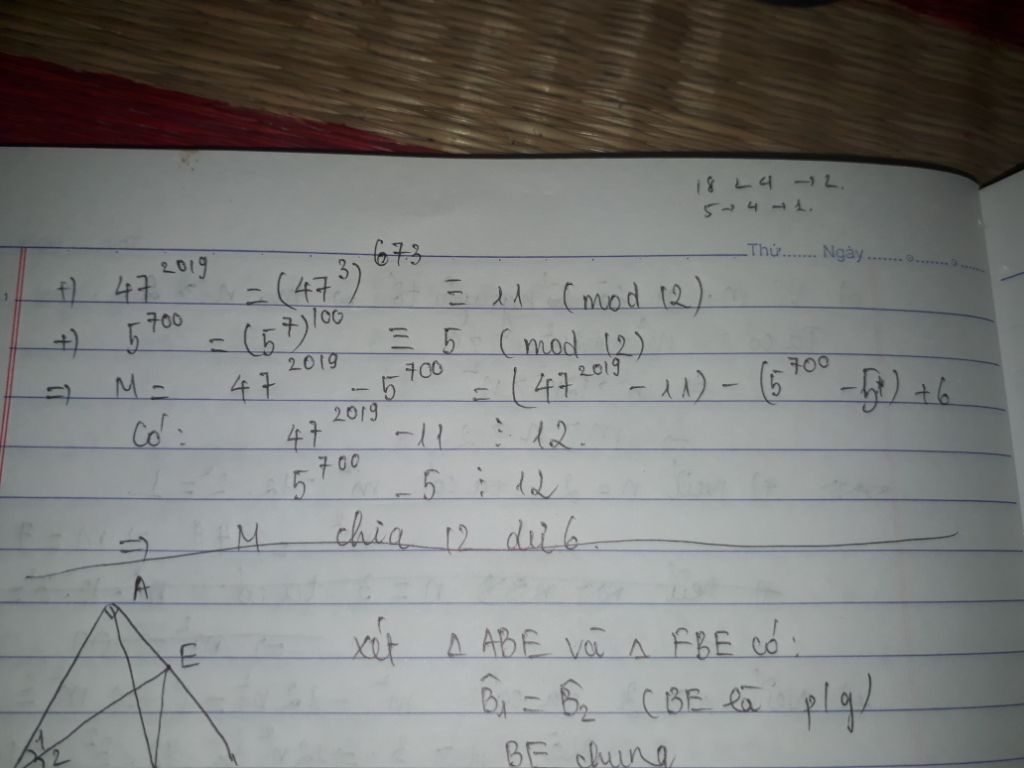 18 ∠ 4 → 2.
5 → 4 → 1.
Thứ....... Ngày
+) 47^2019 = (47^3)^673 ≡ 11 (mod 12)
+) 5^700 = (5^7)^100 ≡ 5 (mod 12)
=> M = 47^2019 - 5^700 = (47^2019 - 11) - (5^700 - 5) + 6
Có: 47^2019 - 11 ⋮ 12.
5^700 - 5 ⋮ 12
=> M chia 12 dư 6.
A
E
1
2
xét Δ ABE và Δ FBE có:
B̂1 = B̂2 (BE là p/g)
BE chung